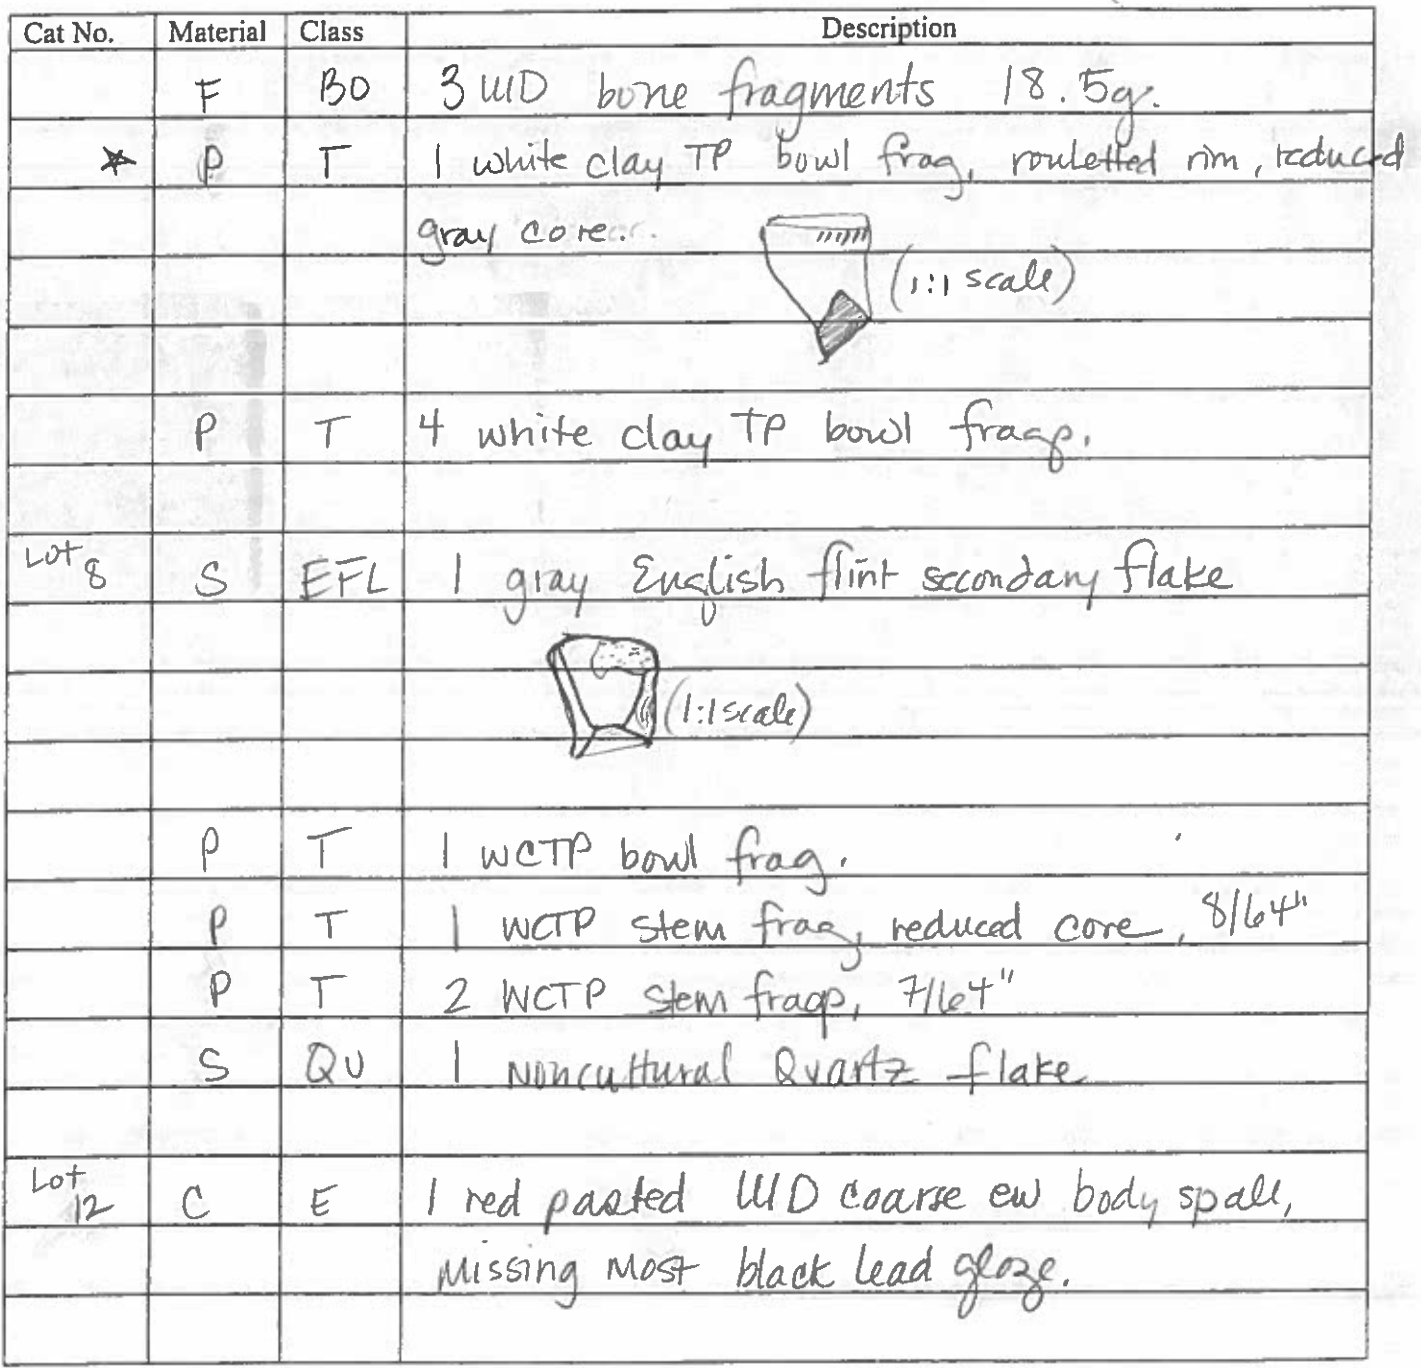 Cat No. Material Class Description
F BO 3 UID bone fragments 18.5g.
* P T 1 white clay TP bowl frag, rouletted rim, reduced
gray core.
(1:1 scale)
P T 4 white clay TP bowl frags.
Lot 8 S EFL 1 gray English flint secondary flake
(1:1 scale)
P T 1 WCTP bowl frag.
P T 1 WCTP stem frag, reduced core, 8/64"
P T 2 WCTP stem frags, 7/64"
S QU 1 Noncultural Quartz flake
Lot 12 C E 1 red pasted UID coarse ew body spall,
missing most black lead glaze.